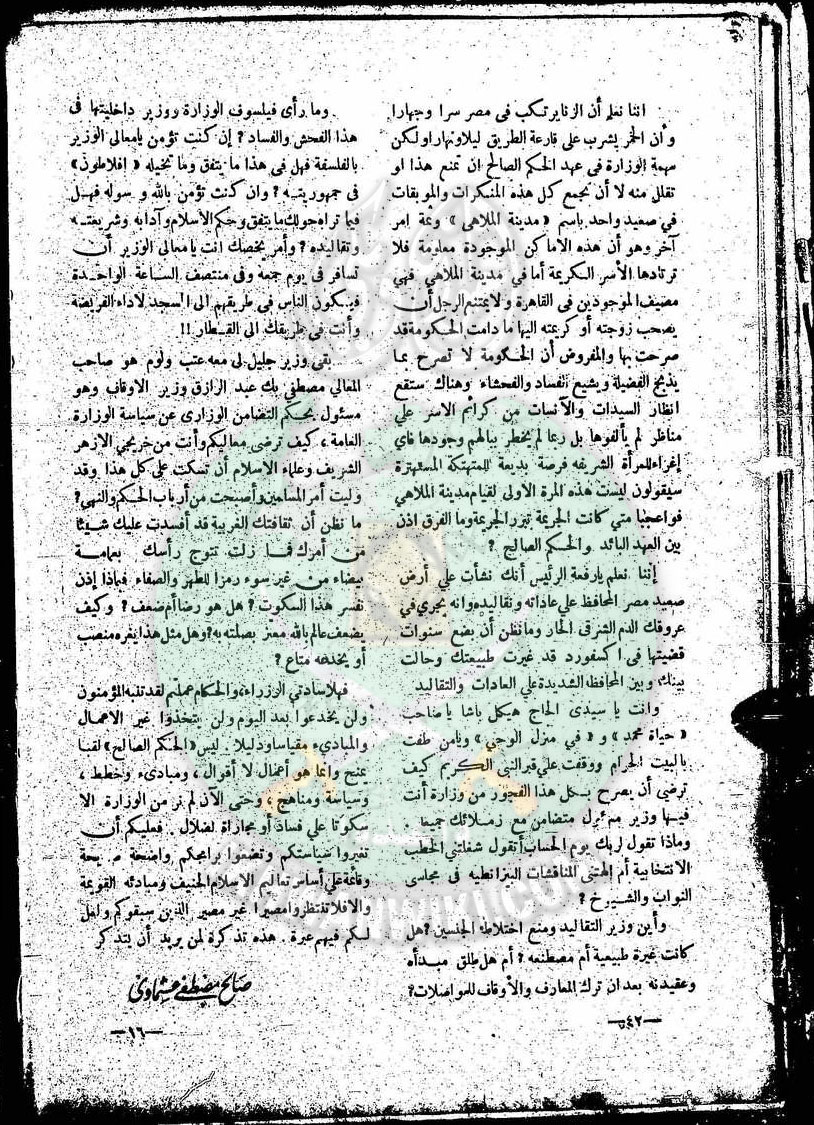 اننا نعلم أن الزنا يرتكب فى مصر سرا وجهارا
وأن الخمر يشرب على قارعة الطريق ليلا ونهارا ولكن
مهمة الوزارة فى عهد الحكم الصالح ان تمنع هذا او
تقلل منه لا أن تجمع كل هذه المنكرات والموبقات
في صعيد واحد باسم « مدينة الملاهى » وثمة امر
آخر وهو أن هذه الاماكن الموجودة معلومة فلا
ترتادها الأسر الكريمة أما في مدينة الملاهي فهي
مصيف الموجودين فى القاهرة ولا يمتنع الرجل أن
يصحب زوجته أو كريمته اليها ما دامت الحكومة قد
صرحت بها والمفروض أن الحكومة لا تصرح بما
يذبح الفضيلة ويشيع الفساد والفحشاء وهناك ستقع
انظار السيدات والآنسات من كرائم الاسر علي
مناظر لم يألفوها بل ربما لم يخطر ببالهم وجودها فاي
إغراء للمرأة الشريفة فرصة بديعة للمتهتكة المستهترة
سيقولون ليست هذه المرة الاولى لقيام مدينة الملاهي
فواعجبا متي كانت الجريمة تبرر الجريمة وما الفرق اذن
بين العهد البائد والحكم الصالح ؟
إننا نعلم يارفعة الرئيس أنك نشأت علي أرض
صعيد مصر المحافظ علي عاداته وتقاليده وانه يجري في
عروقك الدم الشرقى الحار وما نظن أن بضع سنوات
قضيتها فى اكسفورد قد غيرت طبيعتك وحالت
بينك وبين المحافظة الشديدة علي العادات والتقاليد
وانت يا سيدى الحاج هيكل باشا يا صاحب
« حياة محمد » و « في منزل الوحي » ويامن طفت
بالبيت الحرام ووقفت علي قبر النبى الكريم كيف
ترضي أن يصرح بكل هذا الفجور من وزارة أنت
فيها وزير مسئول متضامن مع زملائك جميعا .
وماذا تقول لربك يوم الحساب أتقول شغلتني الخطب
الانتخابية أم ألهتني المناقشات البيزانطيه فى مجلسى
النواب والشيوخ ؟
وأين وزير التقاليد ومنع اختلاط الجنسين ؟ هل
كانت غيرة طبيعية أم مصطنعه ؟ أم هل طلق مبدأه
وعقيدته بعد ان ترك المعارف والأوقاف للمواصلات؟
—٤٢—
وما رأى فيلسوف الوزارة ووزير داخليتها فى
هذا الفحش والفساد ؟ إن كنت تؤمن يامعالى الوزير
بالفلسفة فهل فى هذا ما يتفق وما تخيله « افلاطون »
فى جمهوريته ؟ وان كنت تؤمن بالله ورسوله فهل
فيما تراه حولك ما يتفق وحكم الأسلام وآدابه وشريعته
وتقاليده ؟ وأمر يخصك انت يا معالى الوزير أن
تسافر فى يوم جمعة وفى منتصف الساعة الواحدة
فيكون الناس في طريقهم الى المسجد لاداء الفريضة
وأنت فى طريقك الى القطار !!
بقى وزير جليل لى معه عتب ولوم هو صاحب
المعالى مصطفي بك عبد الرازق وزير الاوقاف وهو
مسئول بحكم التضامن الوزارى عن سياسة الوزارة
العامة ، كيف ترضى معاليكم وأنت من خريجي الازهر
الشريف وعلماء الاسلام أن تسكت علي كل هذا وقد
وليت أمر المسلمين وأصبحت من أرباب الحكم والنهي؟
ما نظن أن ثقافتك الغربية قد أفسدت عليك شيئا
من أمرك فما زلت تتوج رأسك بعمامة
بيضاء من غير سوء رمزا للطهر والصفاء فبماذا إذن
نفسر هذا السكوت ؟ هل هو رضا أم ضعف ؟ وكيف
يضعف عالم بالله معتز بصلته به؟ وهل مثل هذا يغره منصب
أو يخدعه متاع ؟
فهلا سادتي الوزراء والحكام عملتم لقد تنبه المؤمنون
ولن يخدعوا بعد اليوم ولن يتخذوا غير الاعمال
والمباديء مقياسا ودليلا . ليس «الحكم الصالح» لقبا
يمنح وانما هو أعمال لا أقوال ، ومباديء وخطط ،
وسياسة ومناهج ، وحتى الآن لم نر من الوزارة الا
سكوتا علي فساد أو مجاراة لضلال . فعليكم أن
تغيروا سياستكم وتضعوا برامجكم واضحة صريحة
وقائمة علي أساس تعاليم الاسلام الحنيف ومبادئه القويمة
والا فلا تنتظروا مصيرا غير مصير الذين سبقوكم ولعل
لكم فيهم عبرة . هذه تذكرة لمن يريد أن يتذكر
صالح مصطفى عشماوى
—١٦—